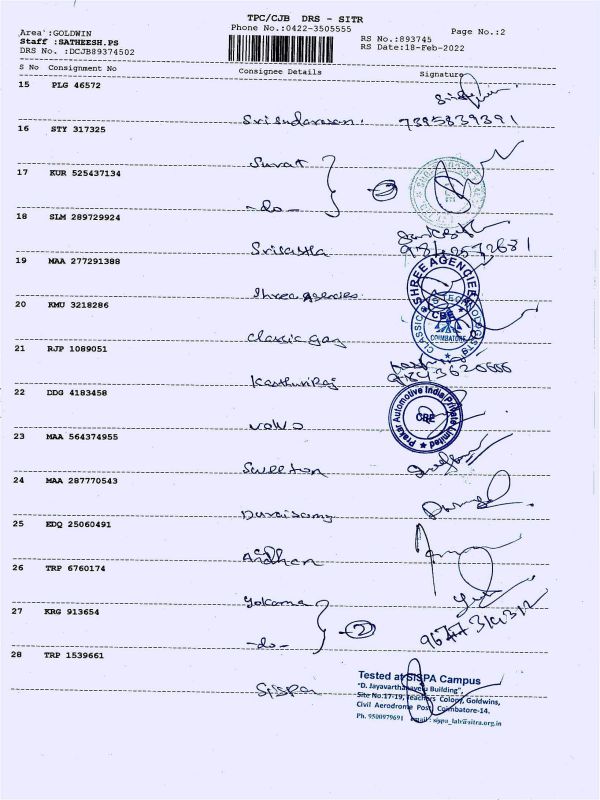 TPC/CJB DRS - SITR
Area :GOLDWIN
Phone No.:0422-3505555
Page No.:2
Staff :SATHEESH.PS
RS No.:893745
DRS No. :DCJB89374502
RS Date:18-Feb-2022
S No Consignment No Consignee Details Signature
15 PLG 46572
Srisudarsan. 7395839391
16 STY 317325
Surat
17 KUR 525437134
2
-do-
18 SLM 289729924
Srisastha
19 MAA 277291388
SHREE AGENCIEE
Shree agencies
CBE
20 KMU 3218286
CLASSIC TECHNOLOGISTS
COIMBATORE
classic gay
21 RJP 1089051
9843620666
Kasthuriraj
22 DDG 4183458
Prakar Automotive India Private Limited
CBE
volvo
23 MAA 564374955
Sweeton
24 MAA 287770543
Duraisamy
25 EDQ 25060491
Ardhan
26 TRP 6760174
Yokama
27 KRG 913654
2
-do-
28 TRP 1539661
Sispa
Tested at SISPA Campus
"D. Jayavarthanavelu Building",
Site No.17-19, Teachers Colony, Goldwins,
Civil Aerodrome Post, Coimbatore-14.
Ph. 9500979691 email : sispa_lab@sitra.org.in